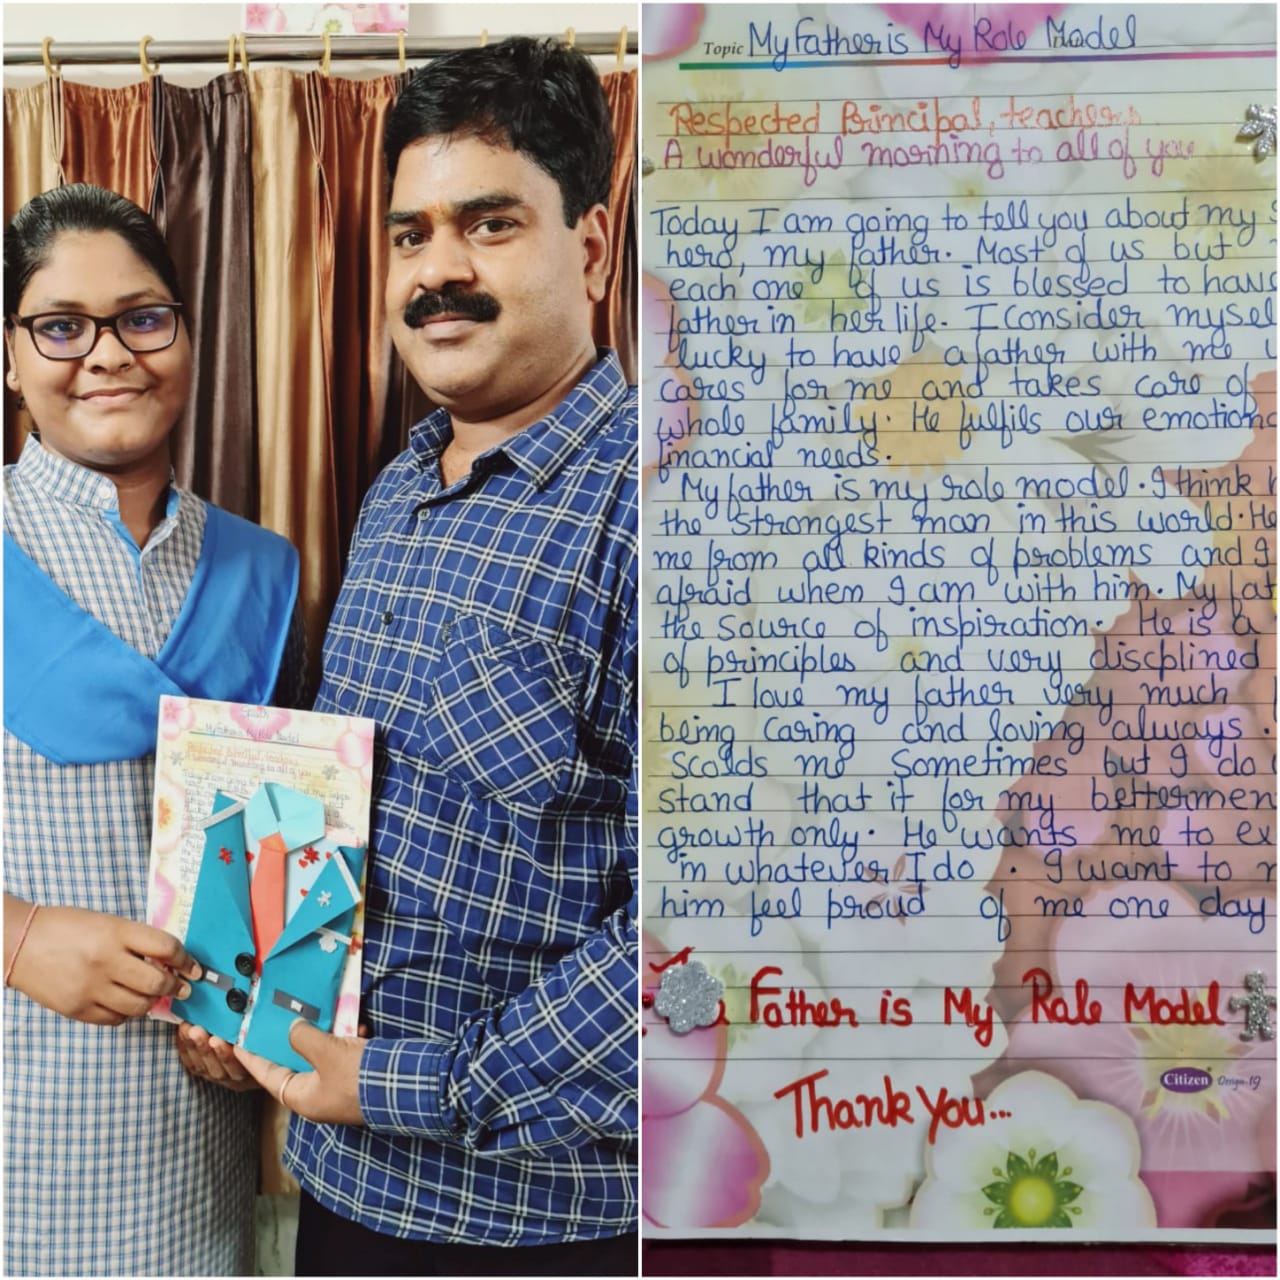 Topic My Father is My Role Model
Respected Principal, teachers
A wonderful morning to all of you
Today I am going to tell you about my
hero, my father. Most of us but
each one of us is blessed to have
father in her life. I consider mysel
lucky to have a father with me
cares for me and takes care of
whole family. He fulfils our emotiona
financial needs.
My father is my role model. I think h
the strongest man in this world. He
me from all kinds of problems and I
afraid when I am with him. My fat
the source of inspiration. He is a
of principles and very discplined
I love my father very much
being caring and loving always.
Scolds me Sometimes but I do
stand that it for my bettermen
growth only. He wants me to ex
in whatever I do. I want to
him feel proud of me one day
Father is My Role Model
Citizen Design-19
Thank you...
My Father is My Role Model
Respected Principal, teachers
A wonderful morning to all of you